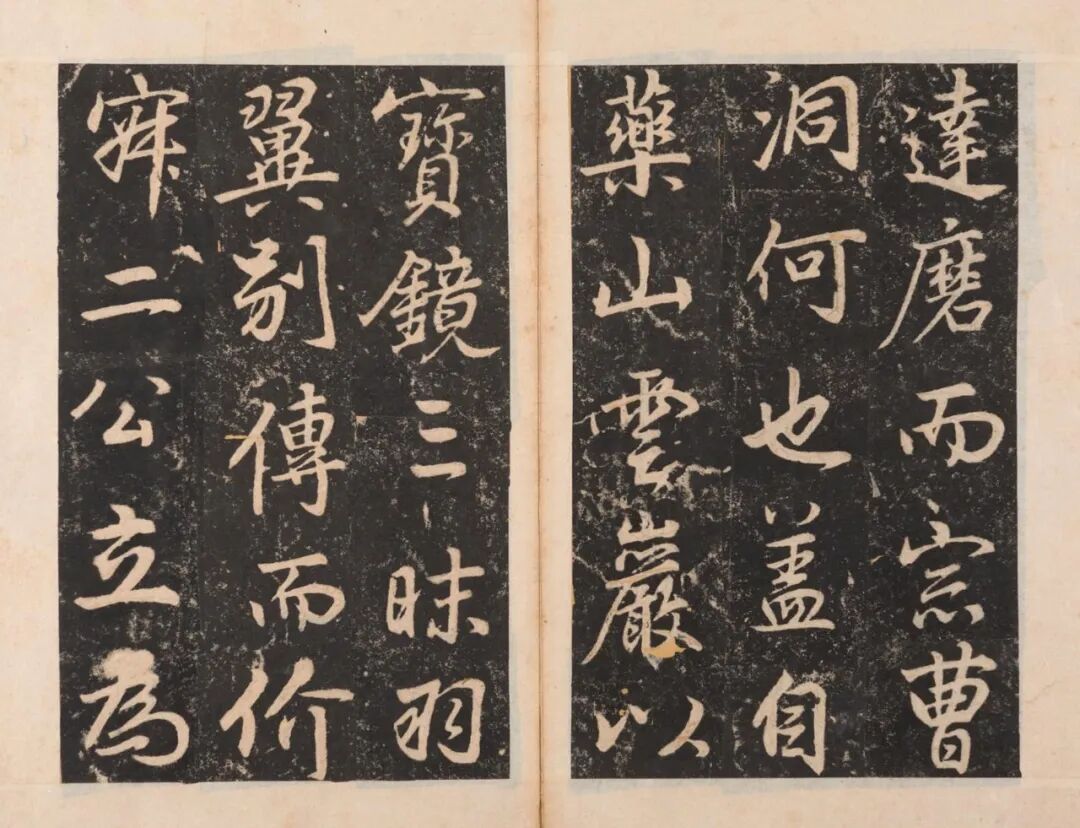 達磨而宗曹
洞何也盖自
藥山雲巖以
寶鏡三昧羽
翼别傳而价
寂二公立為